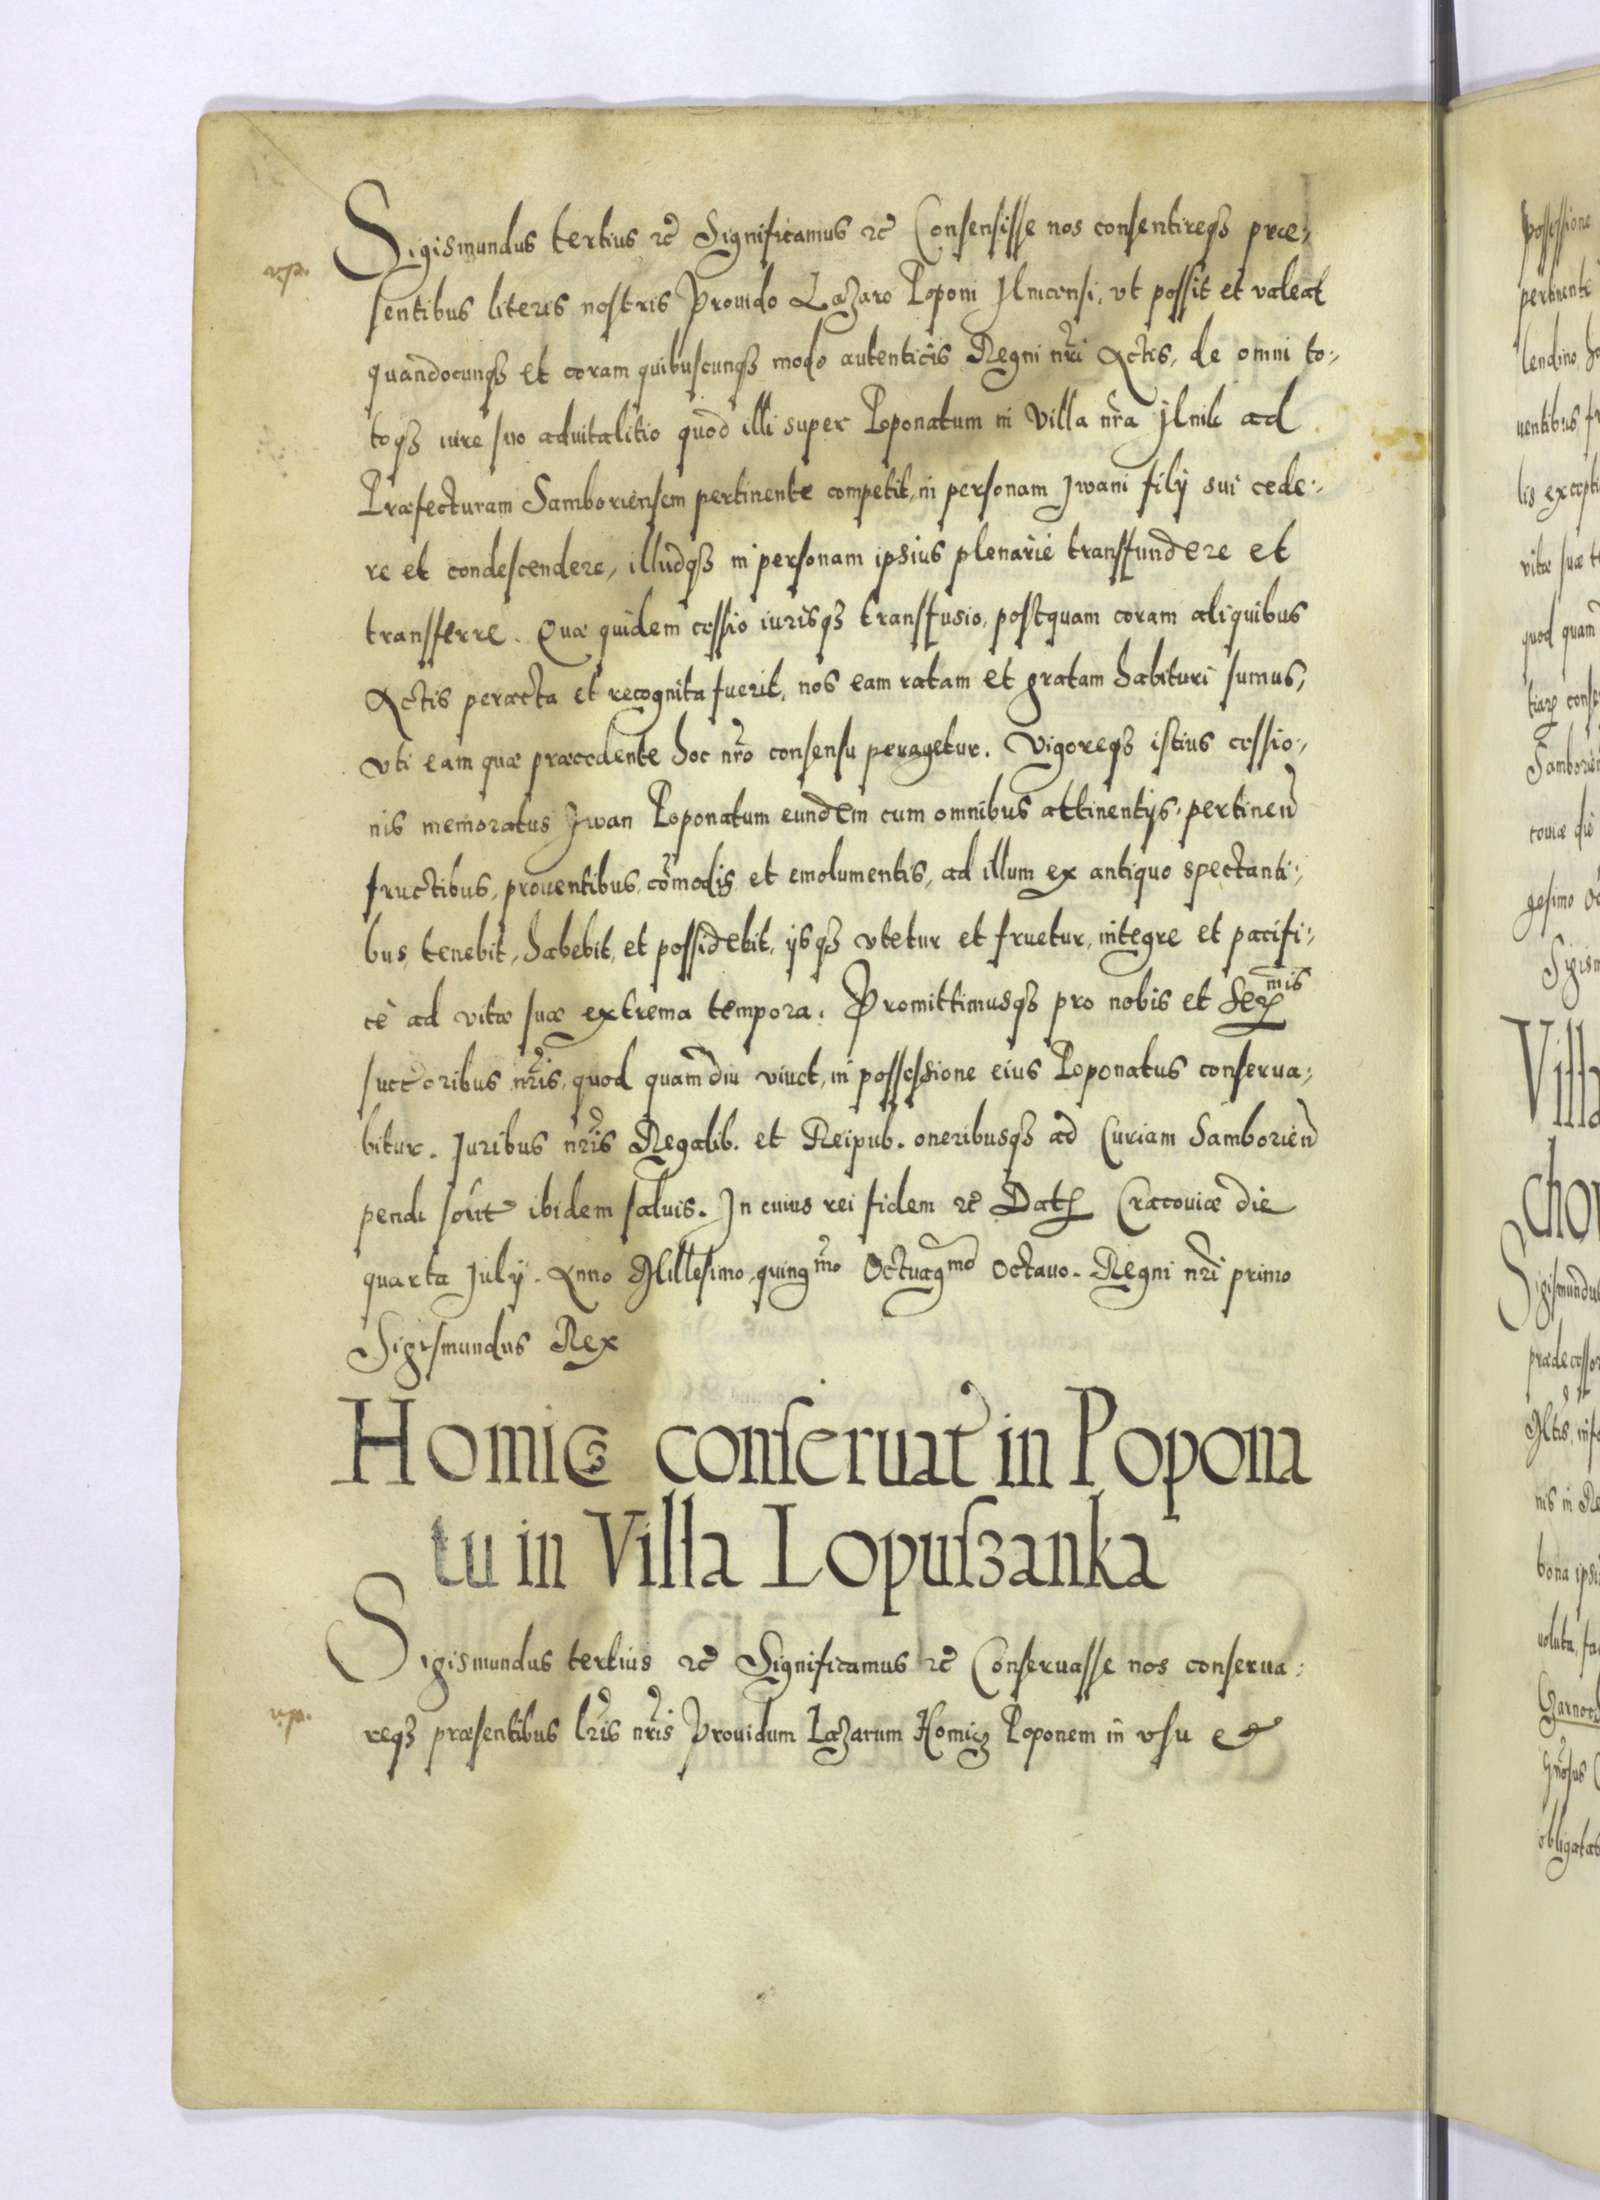 Sigismundus tertius ꝛc̃ Significamus ꝛc̃ Consensisse nos consentireqꝫ præ-
vp.
sentibus literis nostris Prouido Lazaro Poponi Jlnicensi, vt possit et valeat
quandocunqꝫ et coram quibuscunqꝫ modo autenticis Regni nr̃i Actis, de omni to-
toqꝫ iure suo aduitalitio quod illi super Poponatum in Villa nr̃a Jlnik ad
Præfecturam Samboriensem pertinente competit, in personam Jwani filÿ sui cede-
re et condescendere, illudqꝫ in personam ipsius plenarié transfundere et
transferre. Quæ quidem cessio iurisqꝫ transfusio, postquam coram aliquibus
Actis peracta et recognita fuerit, nos eam ratam et gratam habituri sumus,
vti eam quæ præcedente hoc nr̃o consensu peragetur. Vigoreqꝫ istius cessio-
nis memoratus Jwan Poponatum eundem cum omnibus attinentÿs, pertinen̄
fructibus, prouentibus, com̃odis et emolumentis, ad illum ex antiquo spectanti-
bus, tenebit, habebit, et possidebit, ÿsqꝫ vtetur et fruetur, integre et pacifi-
cè ad vitæ suæ extrema tempora. Promittimusqꝫ pro nobis et Ser̃mis
succꝰoribus nr̃is, quod quamdiu viuet, in possessione eius Poponatus conserua-
bitur. Juribus nr̃is Regalib. et Reipub. oneribusqꝫ ad Curiam Samborien̄
pendi solit̃ ibidem saluis. In cuius rei fidem ꝛc̃ Datꝫ Cracouiæ die
quarta Julÿ. Anno Millesimo, quingmo Octuagmo Octauo. Regni nr̃i primo
Sigismundus Rex
Homicz conseruat̃ in Popona
tu in Villa Lopuszanka
Sigismundus tertius ꝛc̃ Significamus ꝛc̃ Conseruasse nos conserua-
vp.
reqꝫ præsentibus lr̃is nr̃is Prouidum Lazarum Homicz Poponem in vsu et